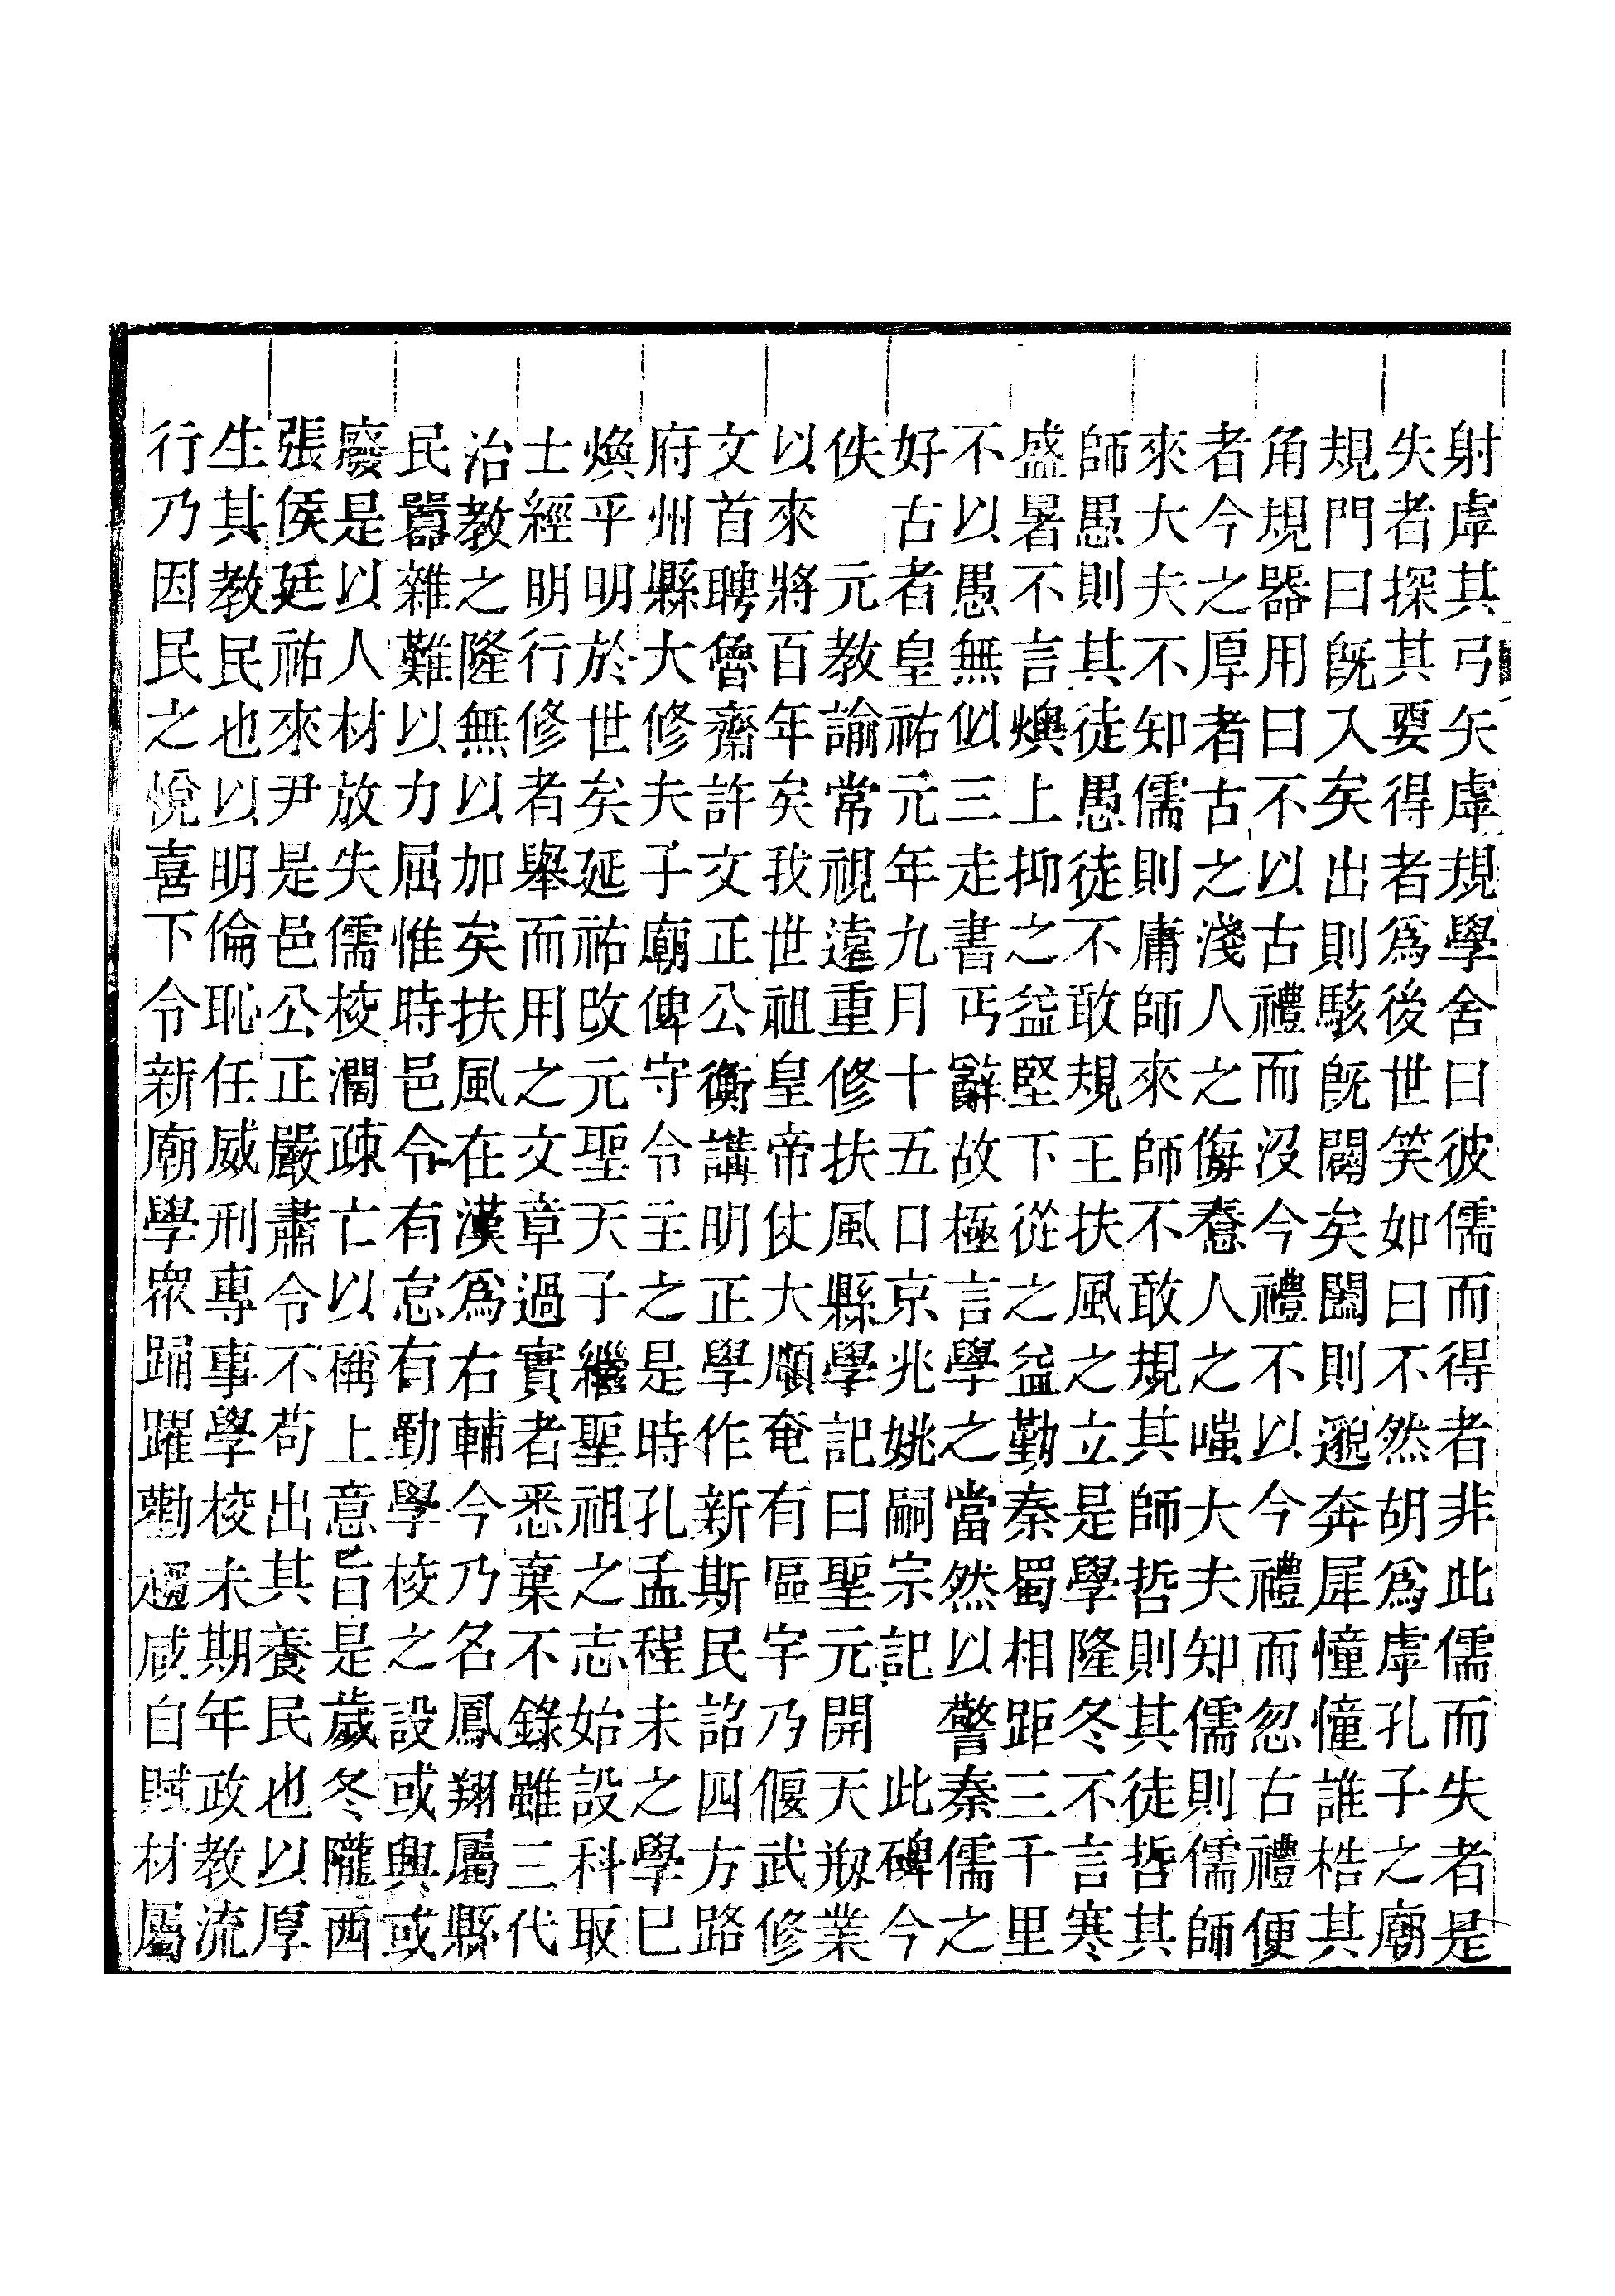 射虛其弓矢虛規學舍曰彼儒而得者非此儒而失者是
失者探其要得者爲後世笑如曰不然胡爲虖孔子之廟
規門曰既入矣出則駭既闢矣闔則邈奔犀憧憧誰梏其
角規器用曰不以古禮而沒今禮不以今禮而忽古禮便
者今之厚者古之淺人之侮惷人之嗤大夫知儒則儒師
來大夫不知儒則庸師來師不敢規其師哲則其徒哲其
師愚則其徒愚徒不敢規王扶風之立是學隆冬不言寒
盛暑不言燠上抑之益堅下從之益勤秦蜀相距三千里
不以愚無似三走書丐辭故極言學之當然以警秦儒之
好古者皇祐元年九月十五口京兆姚嗣宗記 此碑今
佚 元教諭常視遠重修扶風縣學記曰聖元開天剏業
以來將百年矣我世祖皇帝仗大順奄有區宇乃偃武修
文首聘魯齋許文正公衡講明正學作新斯民詔四方路
府州縣大修夫子廟俾守令主之是時孔孟程未之學已
煥乎明於世矣延祐改元聖天子繼聖祖之志始設科取
士經明行修者舉而用之文章過實者悉棄不錄雖三代
治教之隆無以加矣扶風在漢爲右輔今乃名鳳翔屬縣
民囂雜難以力屈惟時邑令有怠有勤學校之設或興或
廢是以人材放失儒校濶疎亡以稱上意旨是歲冬隴西
張侯廷祐來尹是邑公正嚴肅令不苟出其養民也以厚
生其教民也以明倫恥任威刑專事學校未期年政教流
行乃因民之悅喜下令新廟學衆踊躍勸趨咸自賦材屬